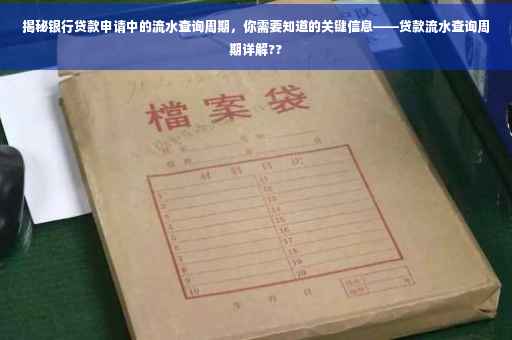 揭秘银行贷款申请中的流水查询周期，你需要知道的关键信息——贷款流水查询周
期详解??
檔案袋
材料目次
1
2
3
4
5
6
7
8
9
10
11
12
13
14
15
16
17
18
19
20
年 月 日